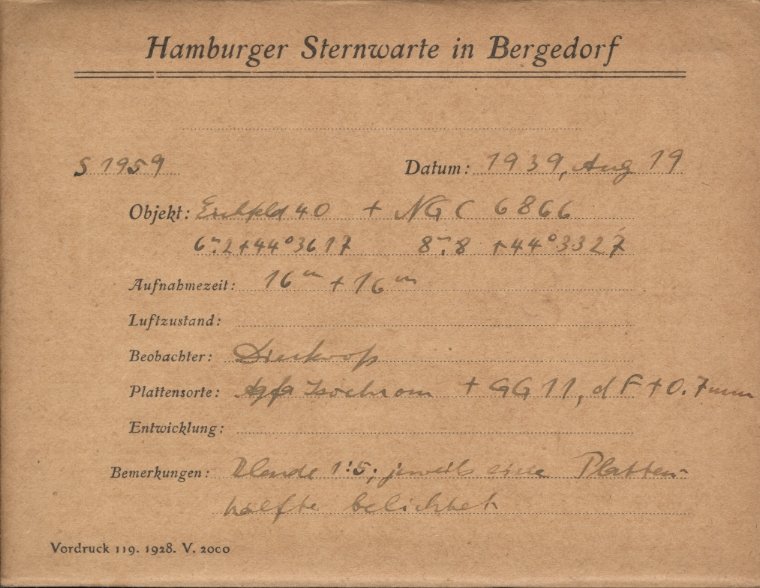 Hamburger Sternwarte in Bergedorf
S 1959 Datum: 1939, Aug 19
Objekt: Eichfeld 40 + NGC 6866
6ᵐ.2 +44°3617 8ᵐ.8 +44°3327
Aufnahmezeit: 16ᵐ + 16ᵐ
Luftzustand:
Beobachter: Dieckvoß
Plattensorte: Agfa Isochrom + GG 11, dF +0.7mm
Entwicklung:
Bemerkungen: Blende 1:5; jeweils eine Platten-
hälfte belichtet
Vordruck 119. 1928. V. 2000